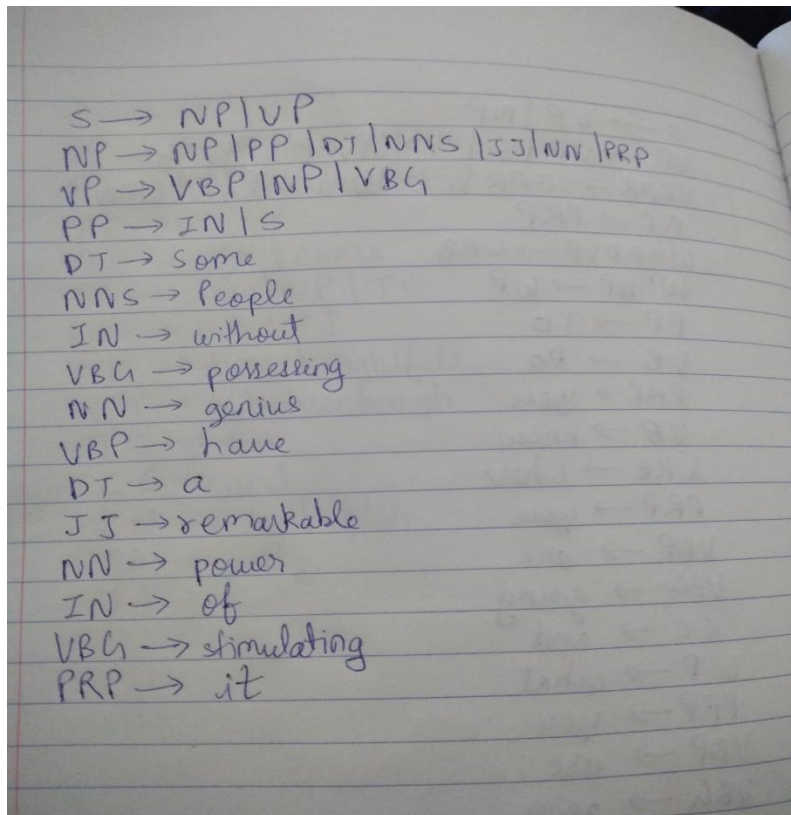 S → NP|VP
NP → NP|PP|DT|NNS|JJ|NN|PRP
VP → VBP|NP|VBG
PP → IN|S
DT → Some
NNS → People
IN → without
VBG → possessing
NN → genius
VBP → have
DT → a
JJ → remarkable
NN → power
IN → of
VBG → stimulating
PRP → it